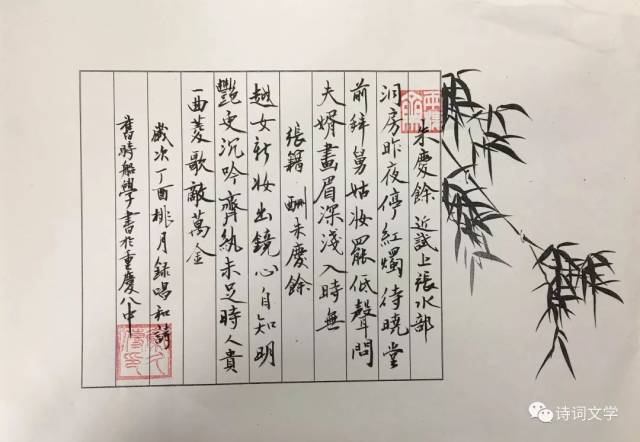 朱慶餘 近試上張水部
洞房昨夜停紅燭待曉堂
前拜舅姑妝罷低聲問
夫婿畫眉深淺入時無
張籍 酬朱慶餘
越女新妝出鏡心自知明
艷更沉吟齊紈未足時人貴
一曲菱歌敵萬金
歲次丁酉桃月録唱和詩
舊時船學書於重慶八中
诗词文学